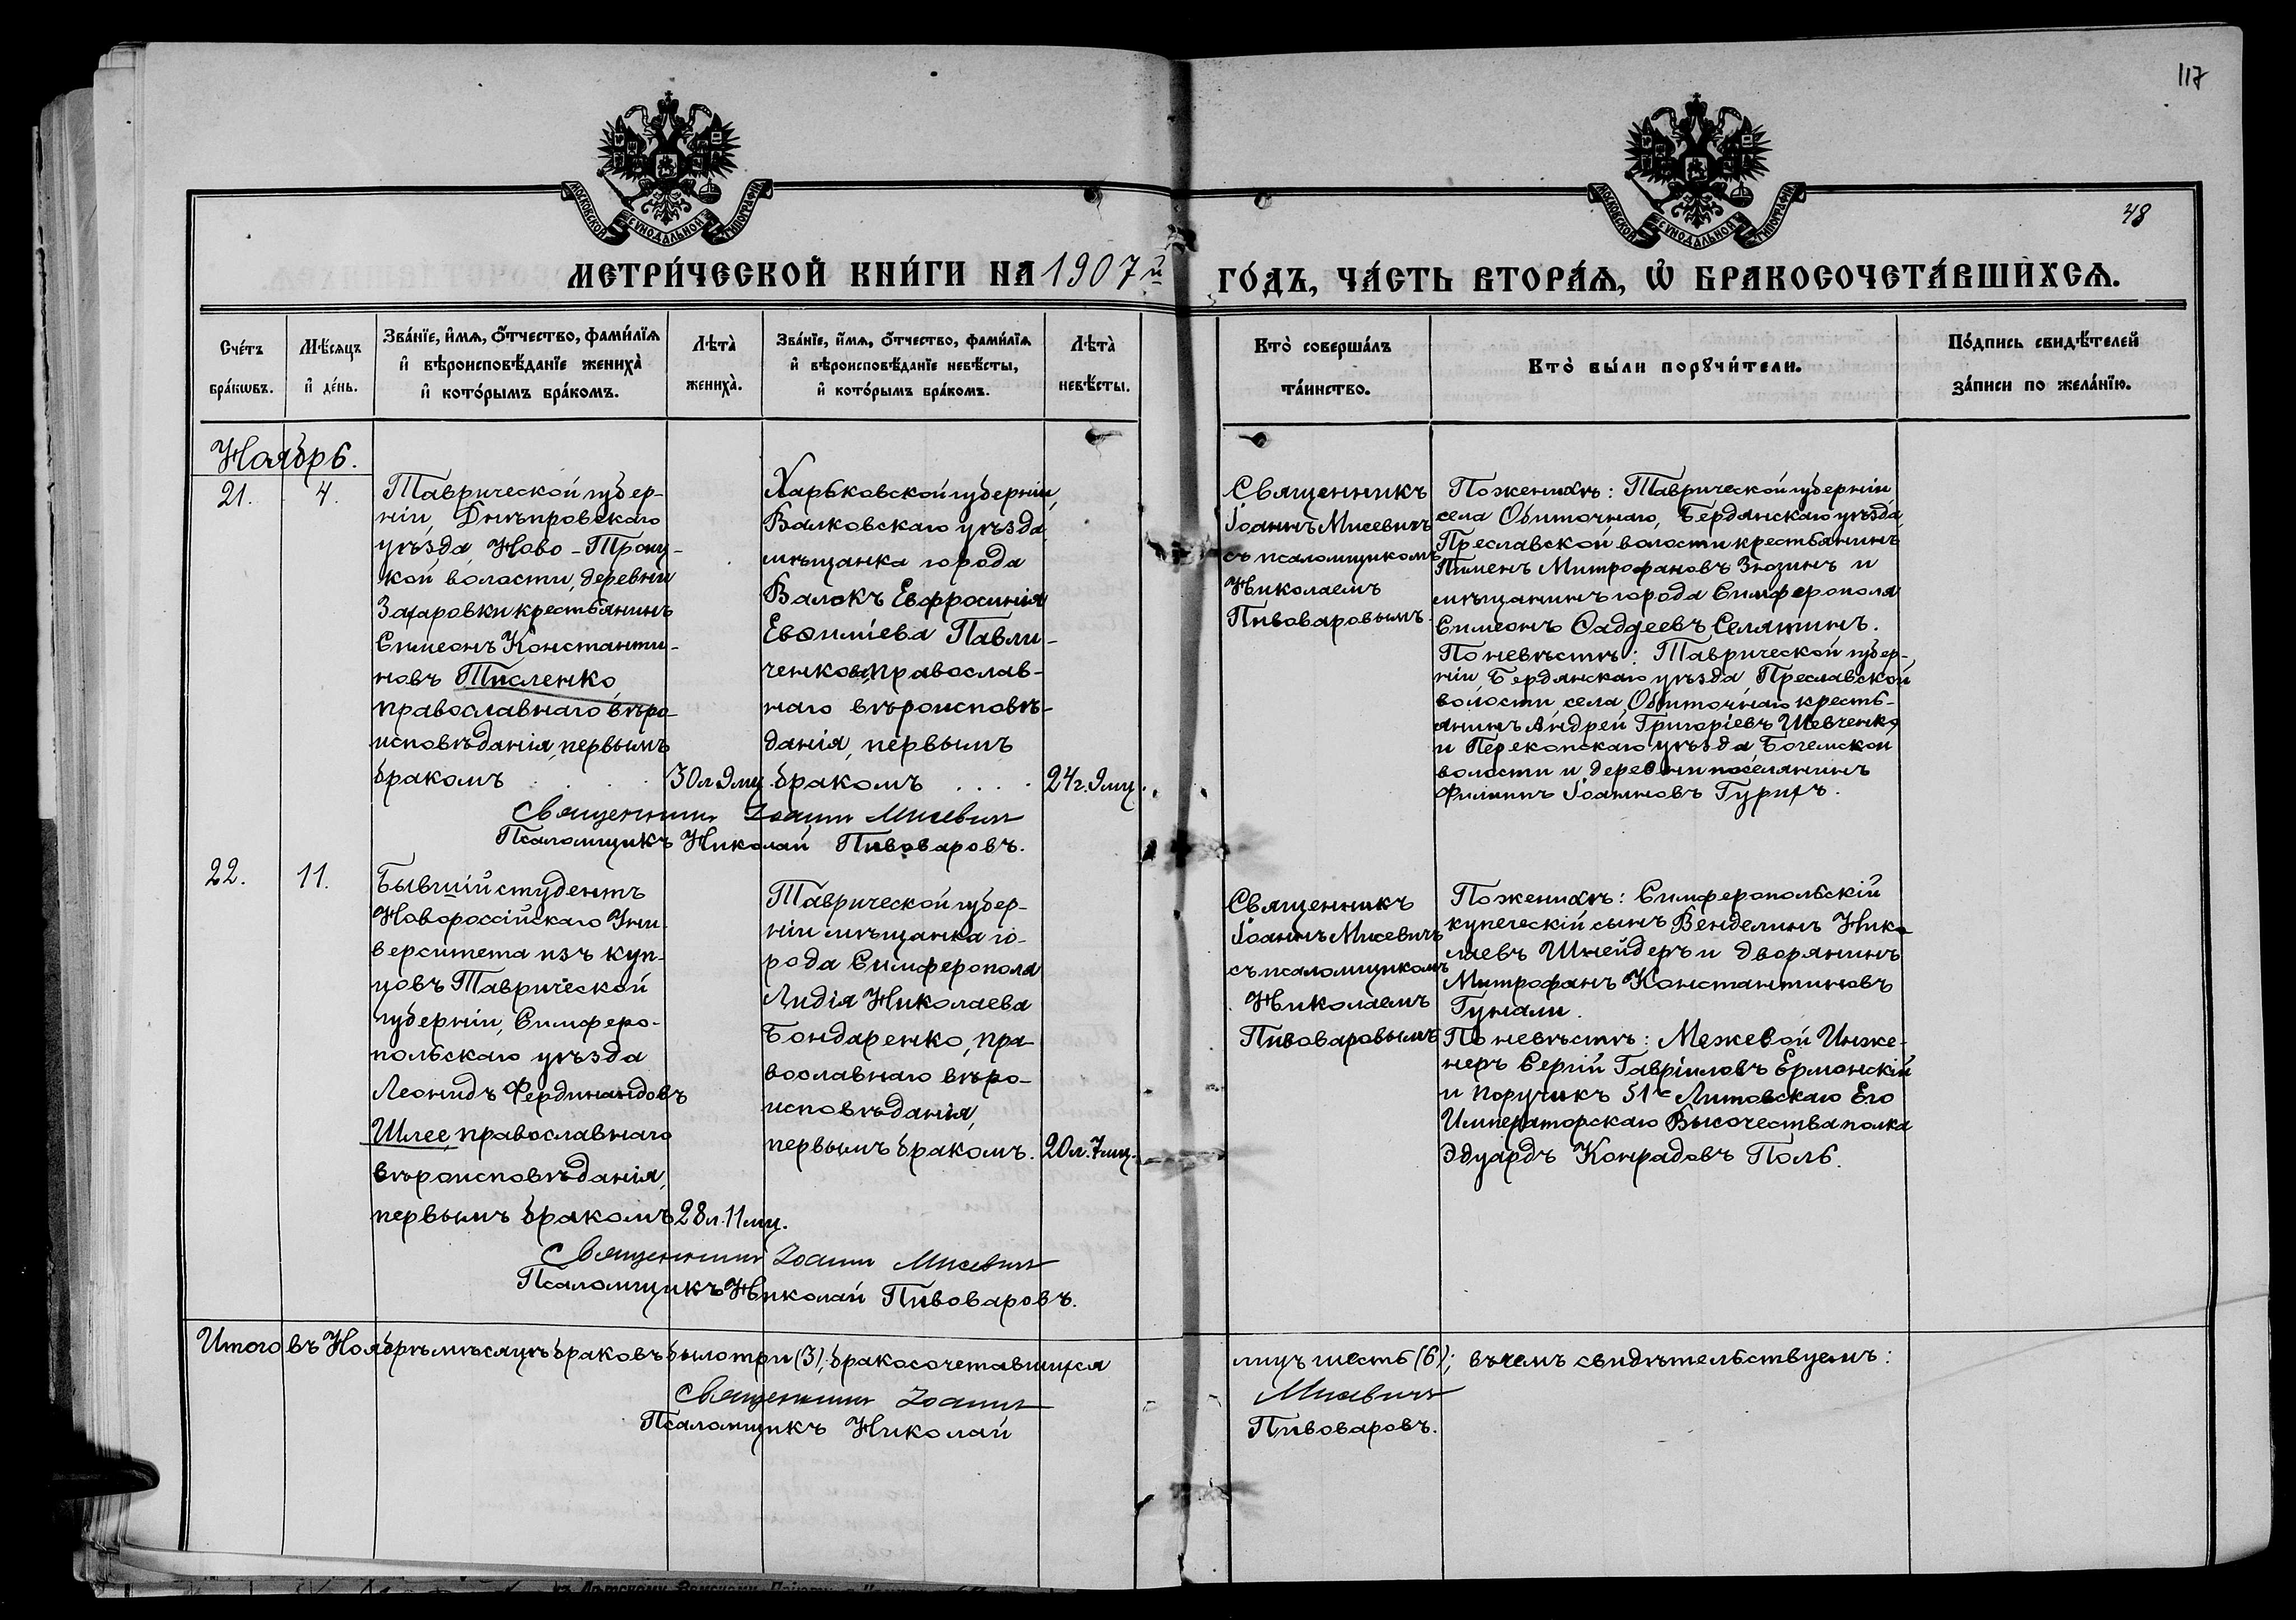 117
48
МОСКОВСКОЙ СУНОДАЛЬНОЙ ТИПОГРАФІИ
МОСКОВСКОЙ СУНОДАЛЬНОЙ ТИПОГРАФІИ
МЕТРИ́ЧЕСКОЙ КНИ́ГИ НА 1907й ГО́ДЪ, ЧА́СТЬ ВТОРА́Ѧ, Ѡ҆ БРАКОСОЧЕТА́ВШИХСѦ.
Сче́тъ
бра́кѡвъ.
Мѣ́сѧцъ
и҆ де́нь.
Зва́нїе, и҆́мѧ, ѻ҆́тчество, фами́лїѧ
и҆ вѣроисповѣ́данїе жениха̀
и҆ кото́рымъ бра́комъ.
Лѣта̀
жениха̀.
Зва́нїе, и҆́мѧ, ѻ҆́тчество, фами́лїѧ
и҆ вѣроисповѣ́данїе невѣ́сты,
и҆ кото́рымъ бра́комъ.
Лѣта̀
невѣ́сты.
Кто̀ соверша́лъ
та́инство.
Кто̀ бы́ли порꙋчи́тели.
По́дпись свидѣ́телей
за́писи по жела́нїю.
Ноябрь.
21.
4.
Таврической губер-
ніи, Днѣпровскаго
уѣзда, Ново-Троиц-
кой волости, деревни
Захаровки крестьянинъ
Симеонъ Константи-
новъ Тисленко,
православнаго вѣро-
исповѣданія, первымъ
бракомъ
30 л. 9 мц.
Харьковской губерніи,
Валковскаго уѣзда
мѣщанка города
Валокъ Евфросинія
Евѳиміева Павли-
ченкова, православ-
наго вѣроисповѣ-
данія, первымъ
бракомъ
24 г. 9 мц.
Священникъ Іоаннъ Мисевичъ
Псаломщикъ Николай Пивоваровъ.
Священникъ
Іоаннъ Мисевичъ
съ псаломщикомъ
Николаемъ
Пивоваровымъ.
По женихѣ: Таврической губерніи
села Обиточнаго, Бердянскаго уѣзда,
Преславской волости крестьянинъ
Пименъ Митрофановъ Зюзинъ и
мѣщанинъ города Симферополя
Симеонъ Ѳаддеевъ Селятинъ.
По невѣстѣ: Таврической губер-
ніи Бердянскаго уѣзда Преславской
волости села Обиточнаго кресть-
янинъ Андрей Григоріевъ Шевченко
и Перекопскаго уѣзда Богемской
волости и деревни поселянинъ
Филиппъ Іоанновъ Гурихъ.
22.
11.
Бывшій студентъ
Новороссійскаго Уни-
верситета изъ куп-
цовъ Таврической
губерніи, Симферо-
польскаго уѣзда
Леонидъ Фердинандовъ
Шлее, православнаго
вѣроисповѣданія,
первымъ бракомъ
28 л. 11 мц.
Таврической губер-
ніи мѣщанка го-
рода Симферополя
Лидія Николаева
Бондаренко, пра-
вославнаго вѣро-
исповѣданія,
первымъ бракомъ.
20 л. 7 мц.
Священникъ Іоаннъ Мисевичъ
Псаломщикъ Николай Пивоваровъ.
Священникъ
Іоаннъ Мисевичъ
съ псаломщикомъ
Николаемъ
Пивоваровымъ
По женихѣ: Симферопольскій
купеческій сынъ Венделинъ Нико
лаевъ Шнейдеръ и дворянинъ
Митрофанъ Константиновъ
Гунали.
По невѣстѣ: Межевой Инже-
неръ Сергій Гавріиловъ Ермонскій
и поручикъ 51го Литовскаго Его
Императорскаго Высочества полка
Эдуардъ Конрадовъ Поль.
Итого въ Ноябрѣ мѣсяцѣ браковъ было три (3); бракосочетавшихся лицъ шесть (6); въ чемъ свидѣтельствуемъ:
Священникъ Іоаннъ Мисевичъ
Псаломщикъ Николай Пивоваровъ.